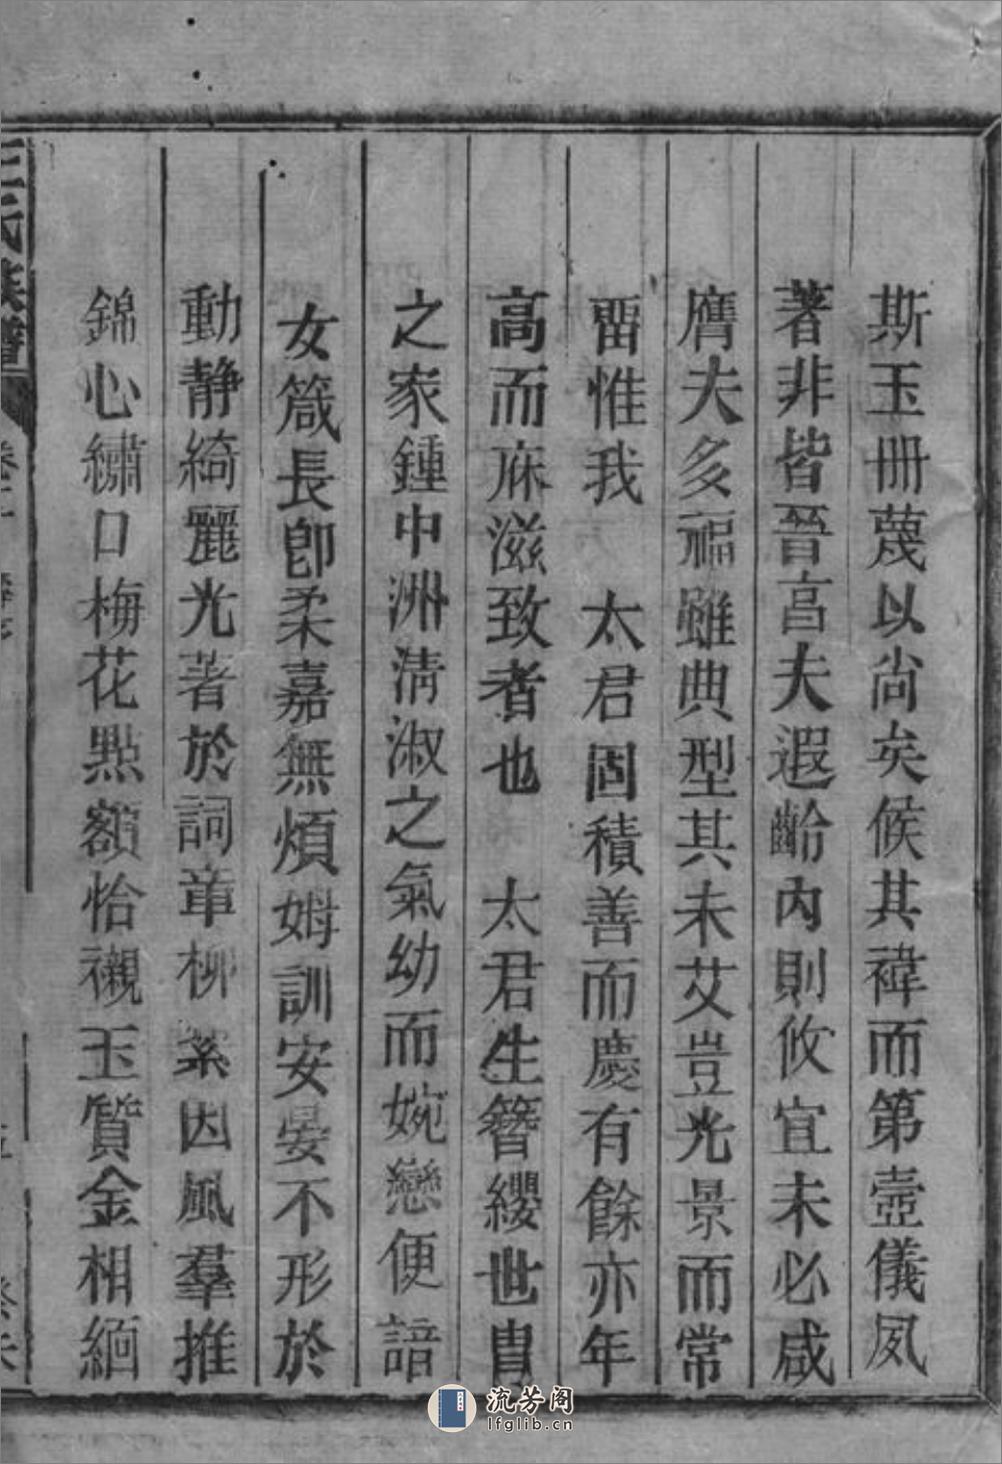 斯玉冊蔑以尚矣候其褘而第壼儀夙
著非皆晉宫夫遐齡內則攸宜未必咸
膺夫多福雖典型其未艾豈光景而常
畱惟我 太君固積善而慶有餘亦年
高而庥滋致者也 太君生簪纓世冑
之家鍾中洲淸淑之氣幼而婉戀便諳
女箴長卽柔嘉無煩姆訓安晏不形於
動靜綺麗光著於詞章柳絮因風羣推
錦心繡口梅花點額恰襯玉質金相緬
王氏族譜
流芳阁
lfglib.cn